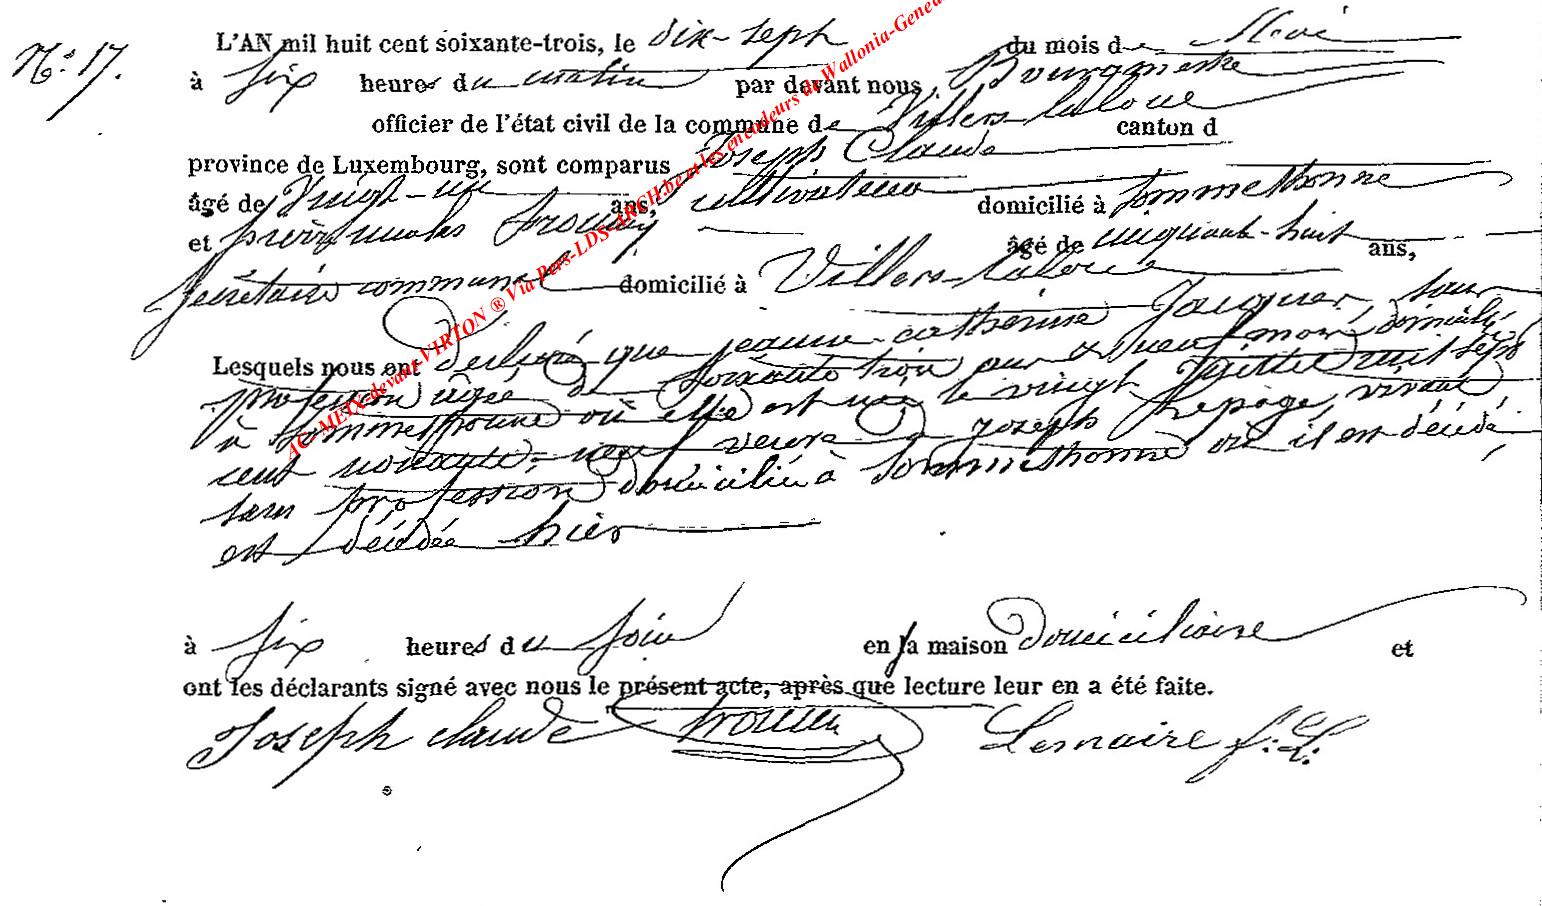 N°: 17.
L'AN mil huit cent soixante-trois, le dix-sept du mois de
à six heures du matin par devant nous, Bourgmestre
officier de l'état civil de la commune de Villers-laloue canton d
province de Luxembourg, sont comparus Joseph Claude
âgé de Vingt-un ans, cultivateur domicilié à Sommethonne
et pierre nicolas âgé de cinquante-huit ans,
Secrétaire communal domicilié à Villers-laloue
Lesquels nous ont Déclaré que jeanne catherine Jacques, sans
profession âgée de soixante trois ans et neuf mois, domiciliée
à Sommethonne où elle est née le vingt juillet mil sept
cent nonante-neuf veuve de Joseph Lepage, vivant
sans profession domicilié à Sommethonne où il est décédé,
est décédée hier
à six heures du soir en la maison Domiciliaire et
ont les déclarants signé avec nous le présent acte, après que lecture leur en a été faite.
Joseph claude Lemaire f.: L.
AC-MEIX-devant-VIRTON ® Via Pers-LDS-ARCH.be et les encodeurs de Wallonia-Genea